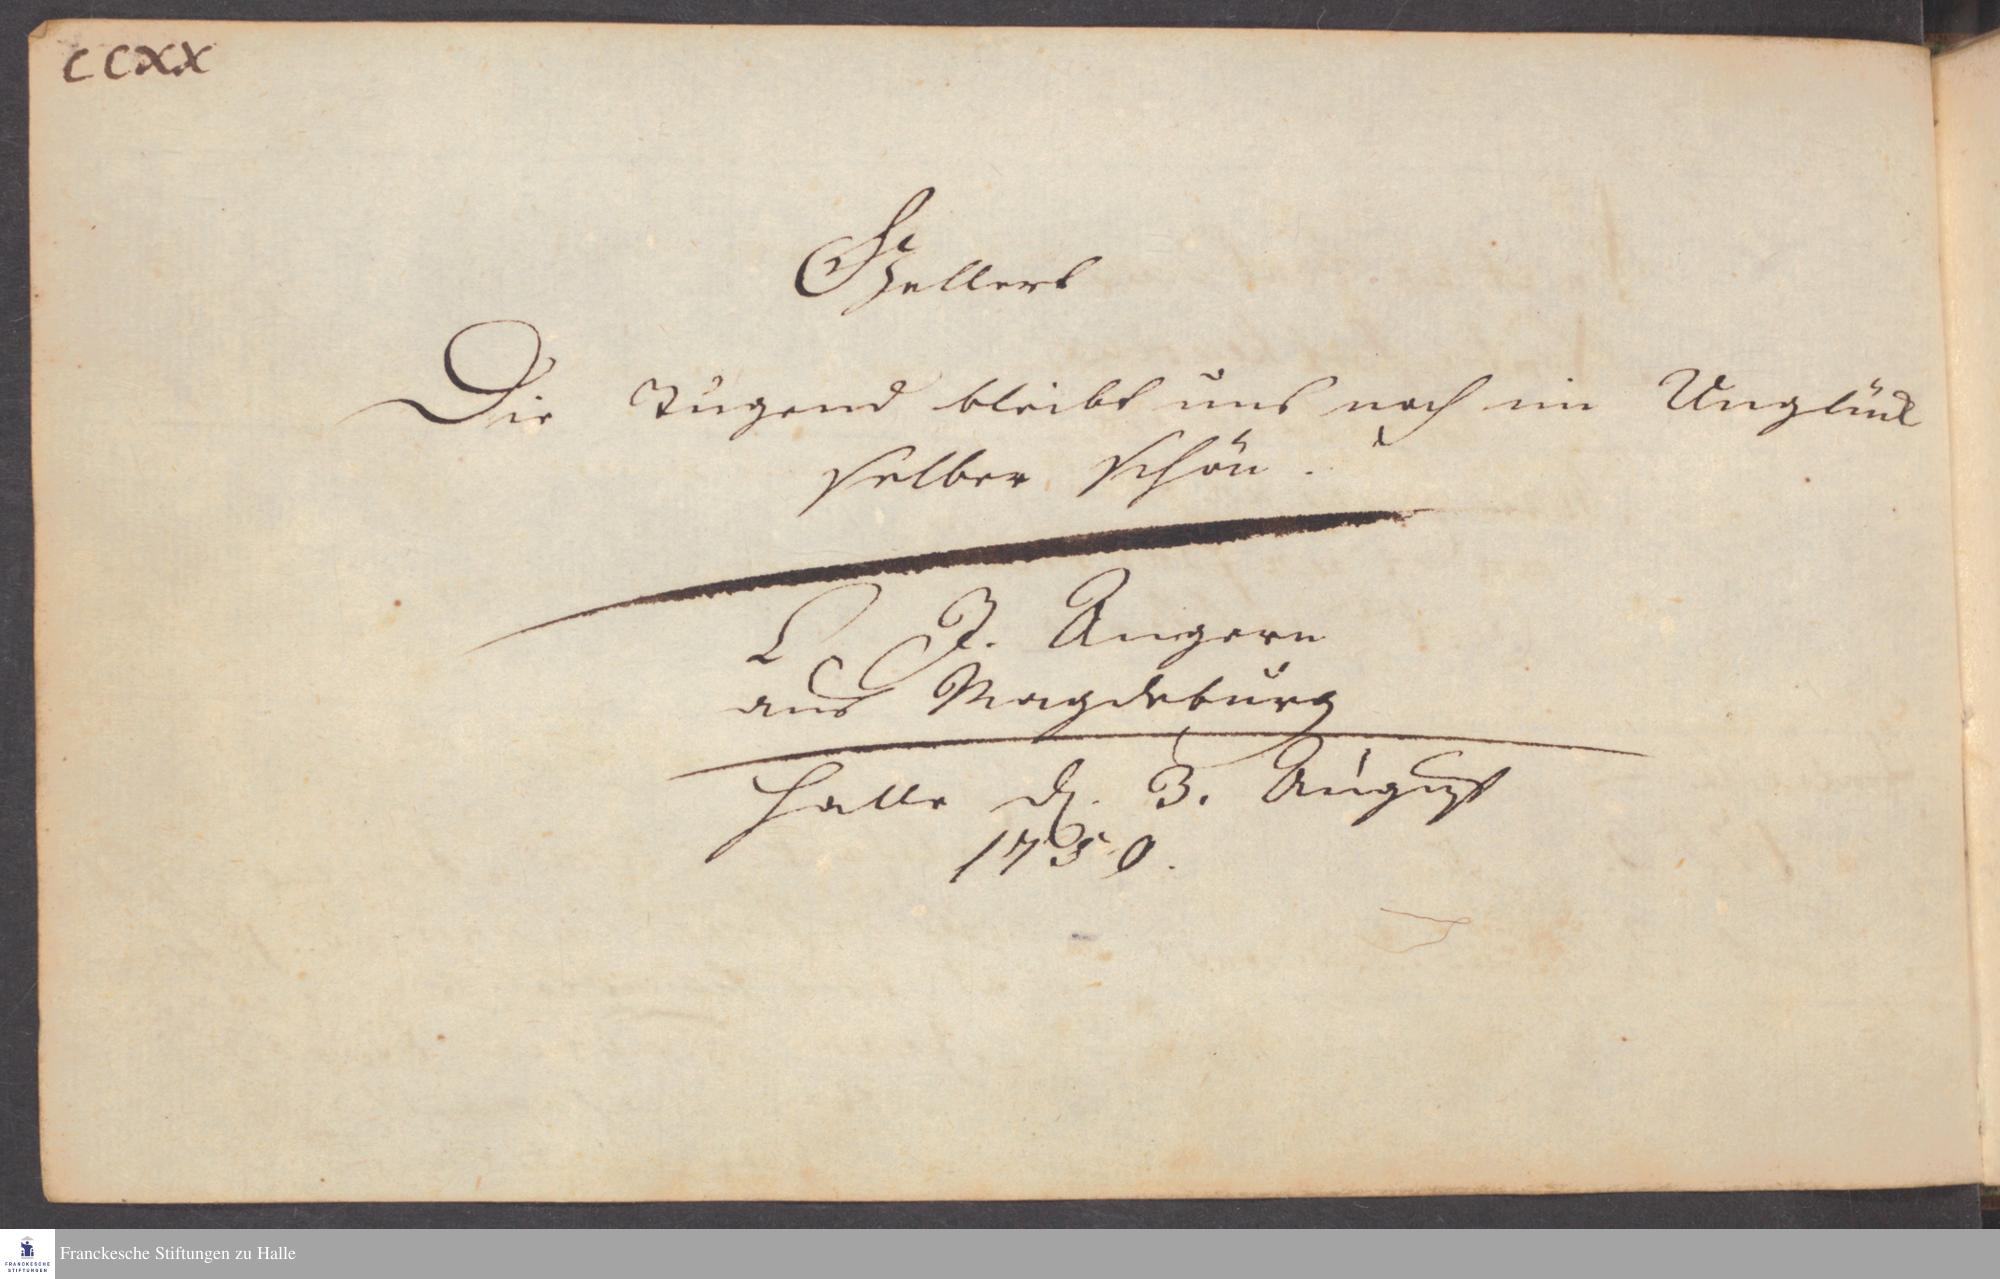 CCXX
Gellert
Die Tugend bleibt uns noch im Unglück
selber schön.
C J. Angern
aus Magdeburg
Halle d. 3. August
1750.
FRANCKESCHE
STIFTUNGEN
Franckesche Stiftungen zu Halle